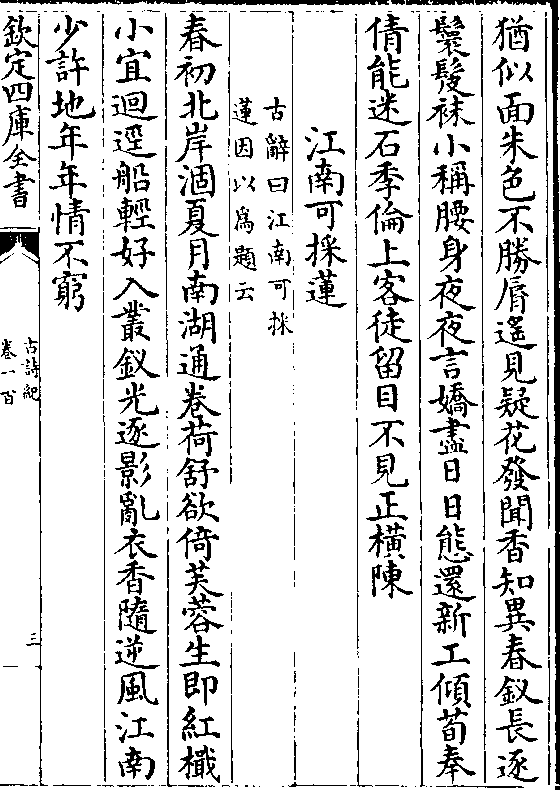 猶似面朱色不勝脣遙見疑花發聞香知異春釵長逐
鬟髮袜小稱腰身夜夜言嬌盡日日態還新工傾荀奉
倩能迷石季倫上客徒留目不見正橫陳
江南可採蓮
古辭曰江南可採
蓮因以為題云
春初北岸涸夏月南湖通卷荷舒欲倚芙蓉生即紅檝
小宜迴逕船輕好入叢釵光逐影亂衣香隨逆風江南
少許地年年情不窮
欽定四庫全書
古詩紀
卷一百
三